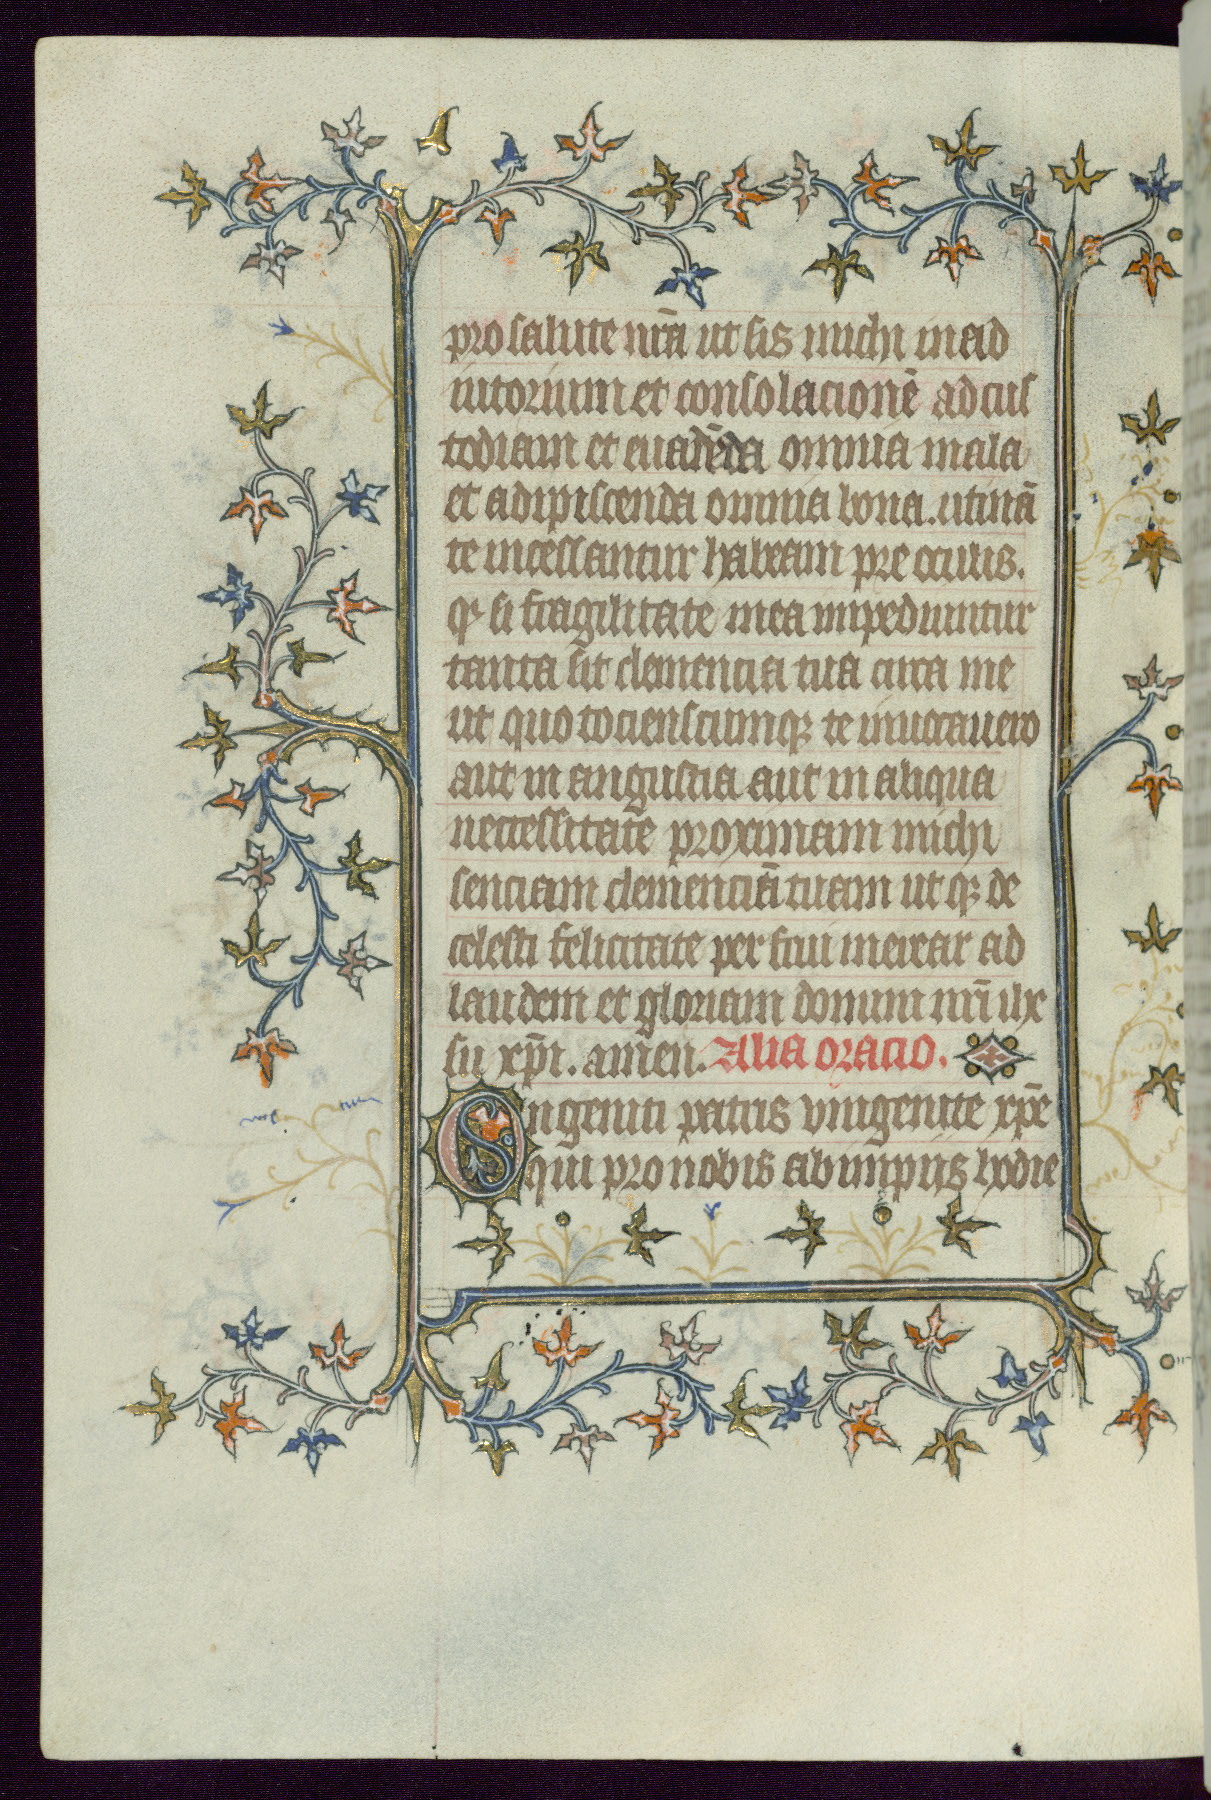 pro salute nr̄a ut sis michi in ad
iutorium et consolacionē ad cus
todiam et euadēda omnia mala
et adipiscenda omnia bona. utinā
te incessantur habeam pre oculis.
qꝫ si fragilitate mea impediuntur
tanta sit clemencia tua circa me
ut quotocienscumqꝫ te inuocauero
aut in angustia aut in aliqua
neccessitate proximam michi
senciam clemenciā tuam ut qꝫ de
celesti felicitate per frui merear ad
laudem et gloriam domini nr̄i ihe
su xp̄i. amen. Alia oracio.
Ingeniti patris vnigenite xp̄e
qui pro nobis ab impiis hodie